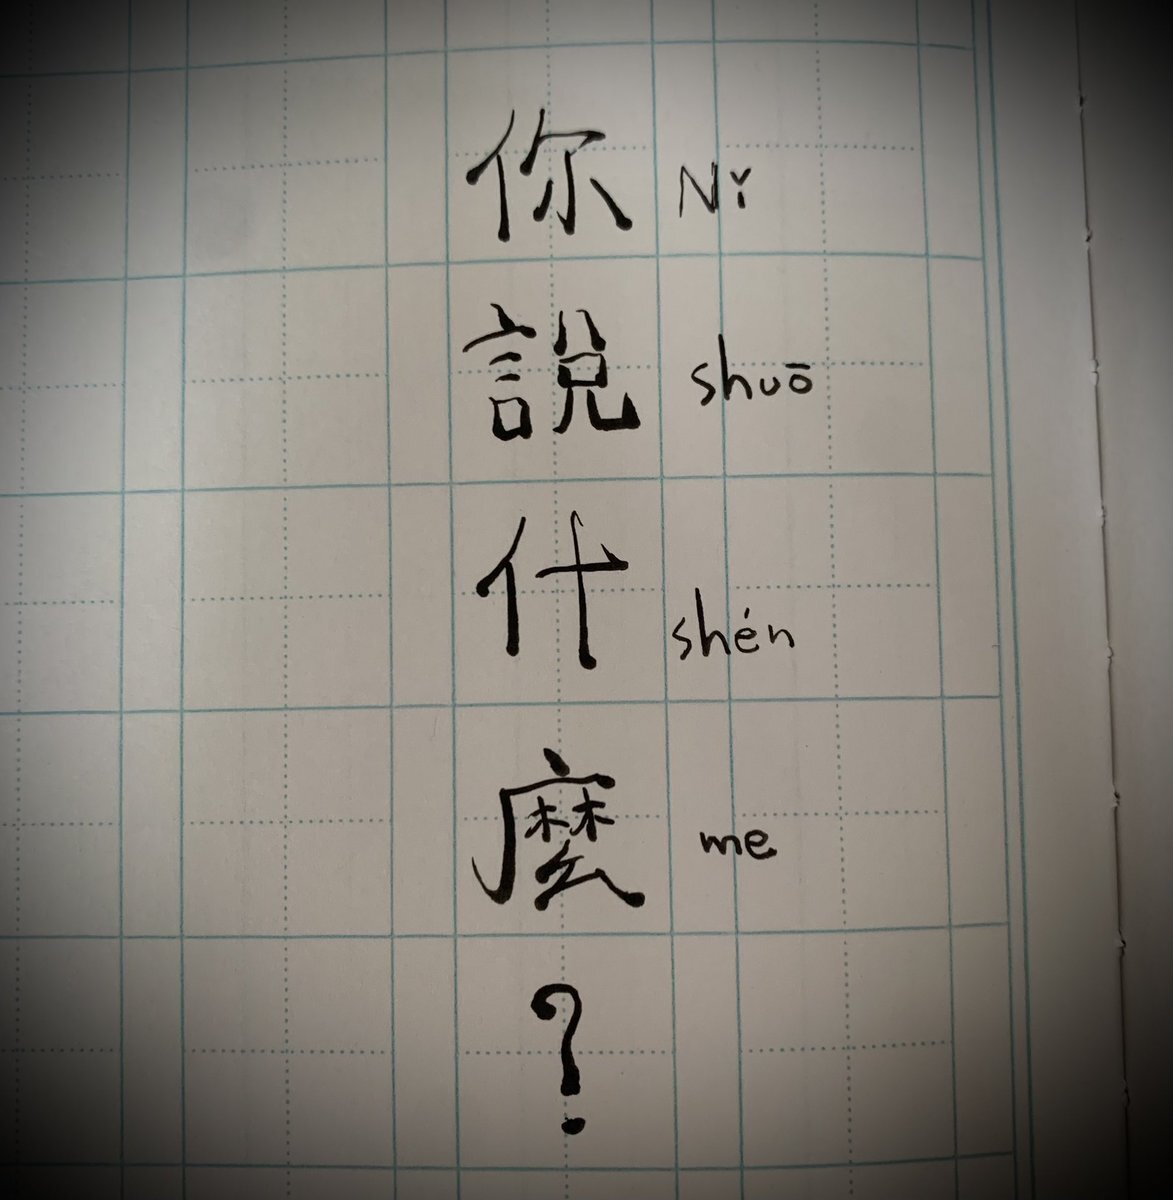 你 Nǐ
說 shuō
什 shén
麼 me
?